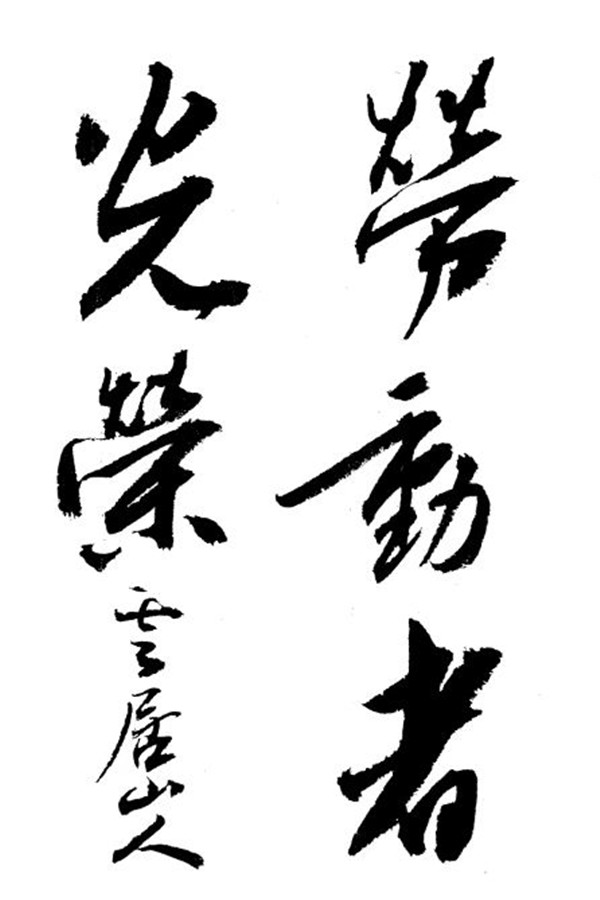 勞動者
光榮
雲居山人